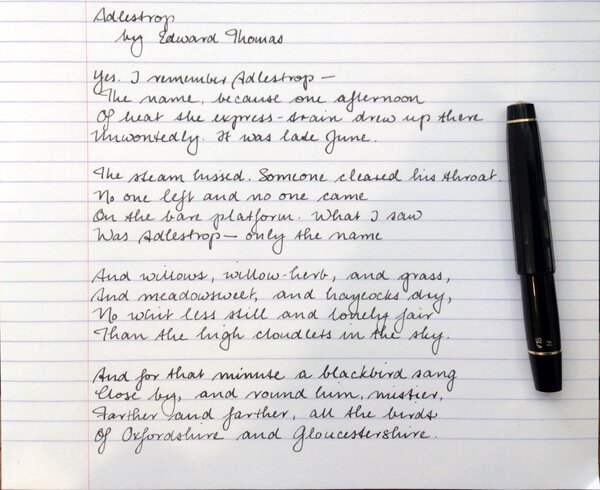 Adlestrop
by Edward Thomas
Yes. I remember Adlestrop —
The name, because one afternoon
Of heat the express-train drew up there
Unwontedly. It was late June.
The steam hissed. Someone cleared his throat.
No one left and no one came
On the bare platform. What I saw
Was Adlestrop — only the name
And willows, willow-herb, and grass,
And meadowsweet, and haycocks dry,
No whit less still and lonely fair
Than the high cloudlets in the sky.
And for that minute a blackbird sang
Close by, and round him, mistier,
Farther and farther, all the birds
Of Oxfordshire and Gloucestershire.